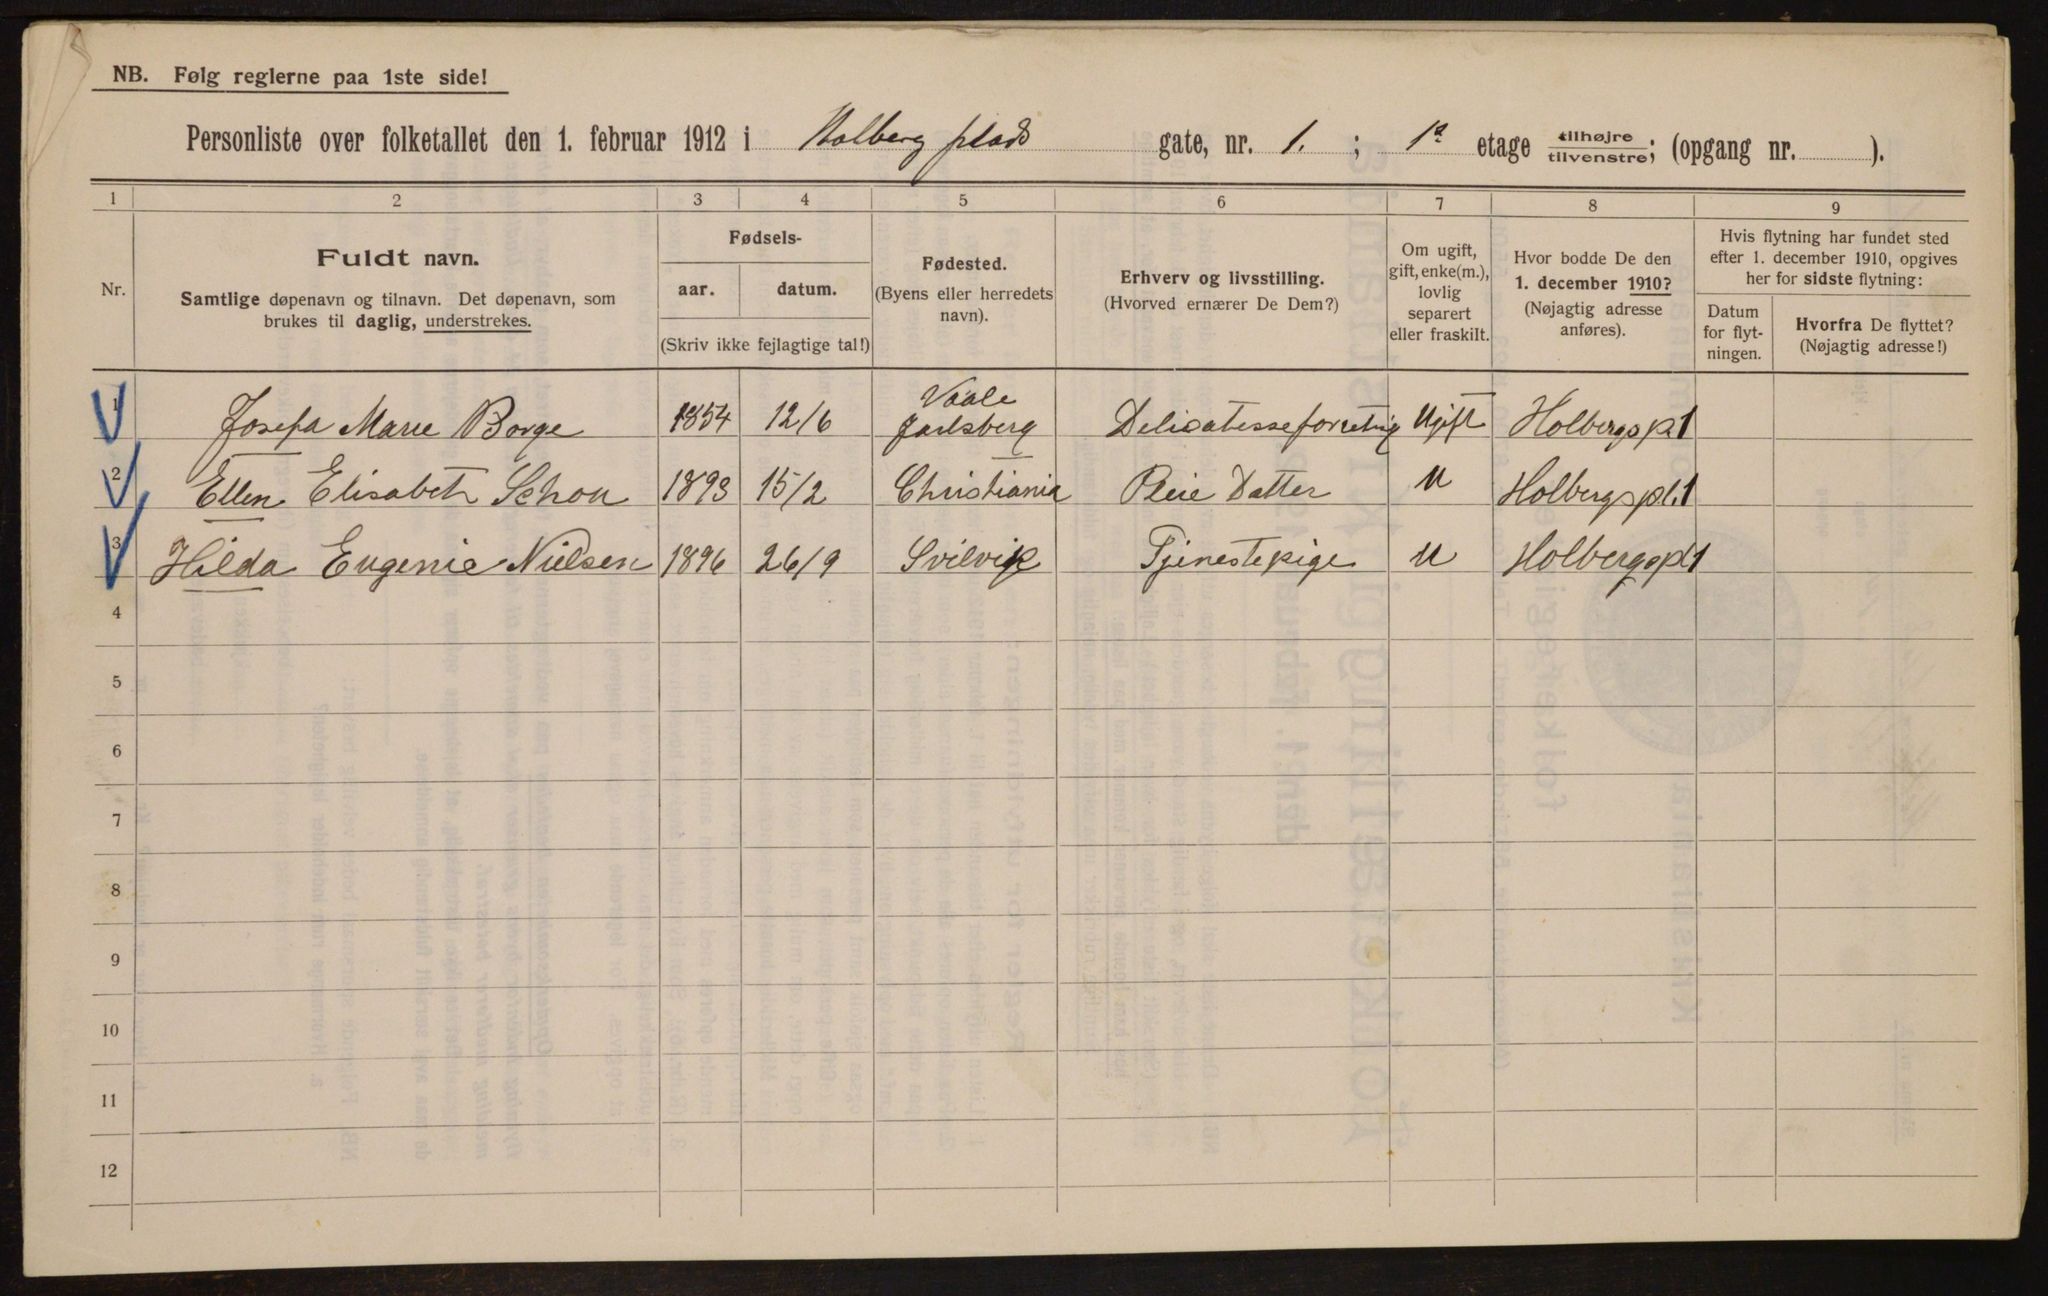 NB. Følg reglerne paa 1ste side!
Personliste over folketallet den 1. februar 1912 i Holberg plads gate, nr. 1. ; 1ª etage tilhøjre/tilvenstre; (opgang nr. ).
1 2 3 4 5 6 7 8 9
Nr.
Fuldt navn.
Samtlige døpenavn og tilnavn. Det døpenavn, som
brukes til daglig, understrekes.
Fødsels-
aar. datum.
(Skriv ikke fejlagtige tal!)
Fødested.
(Byens eller herredets
navn).
Erhverv og livsstilling.
(Hvorved ernærer De Dem?)
Om ugift,
gift, enke(m.),
lovlig
separert
eller fraskilt.
Hvor bodde De den
1. december 1910?
(Nøjagtig adresse
anføres).
Hvis flytning har fundet sted
efter 1. december 1910, opgives
her for sidste flytning:
Datum
for flyt-
ningen.
Hvorfra De flyttet?
(Nøjagtig adresse!)
1 Josefa Marie Borge 1854 12/6 Vaale Jarlsberg Delicatesseforretnig Ugift Holbergspl 1
2 Ellen Elisabeth Schou 1893 15/2 Christiania Pleie Datter U Holbergspl. 1
3 Hilda Eugenie Nielsen 1896 26/9 Svelvik Tjenestepige U Holbergspl 1
4
5
6
7
8
9
10
11
12